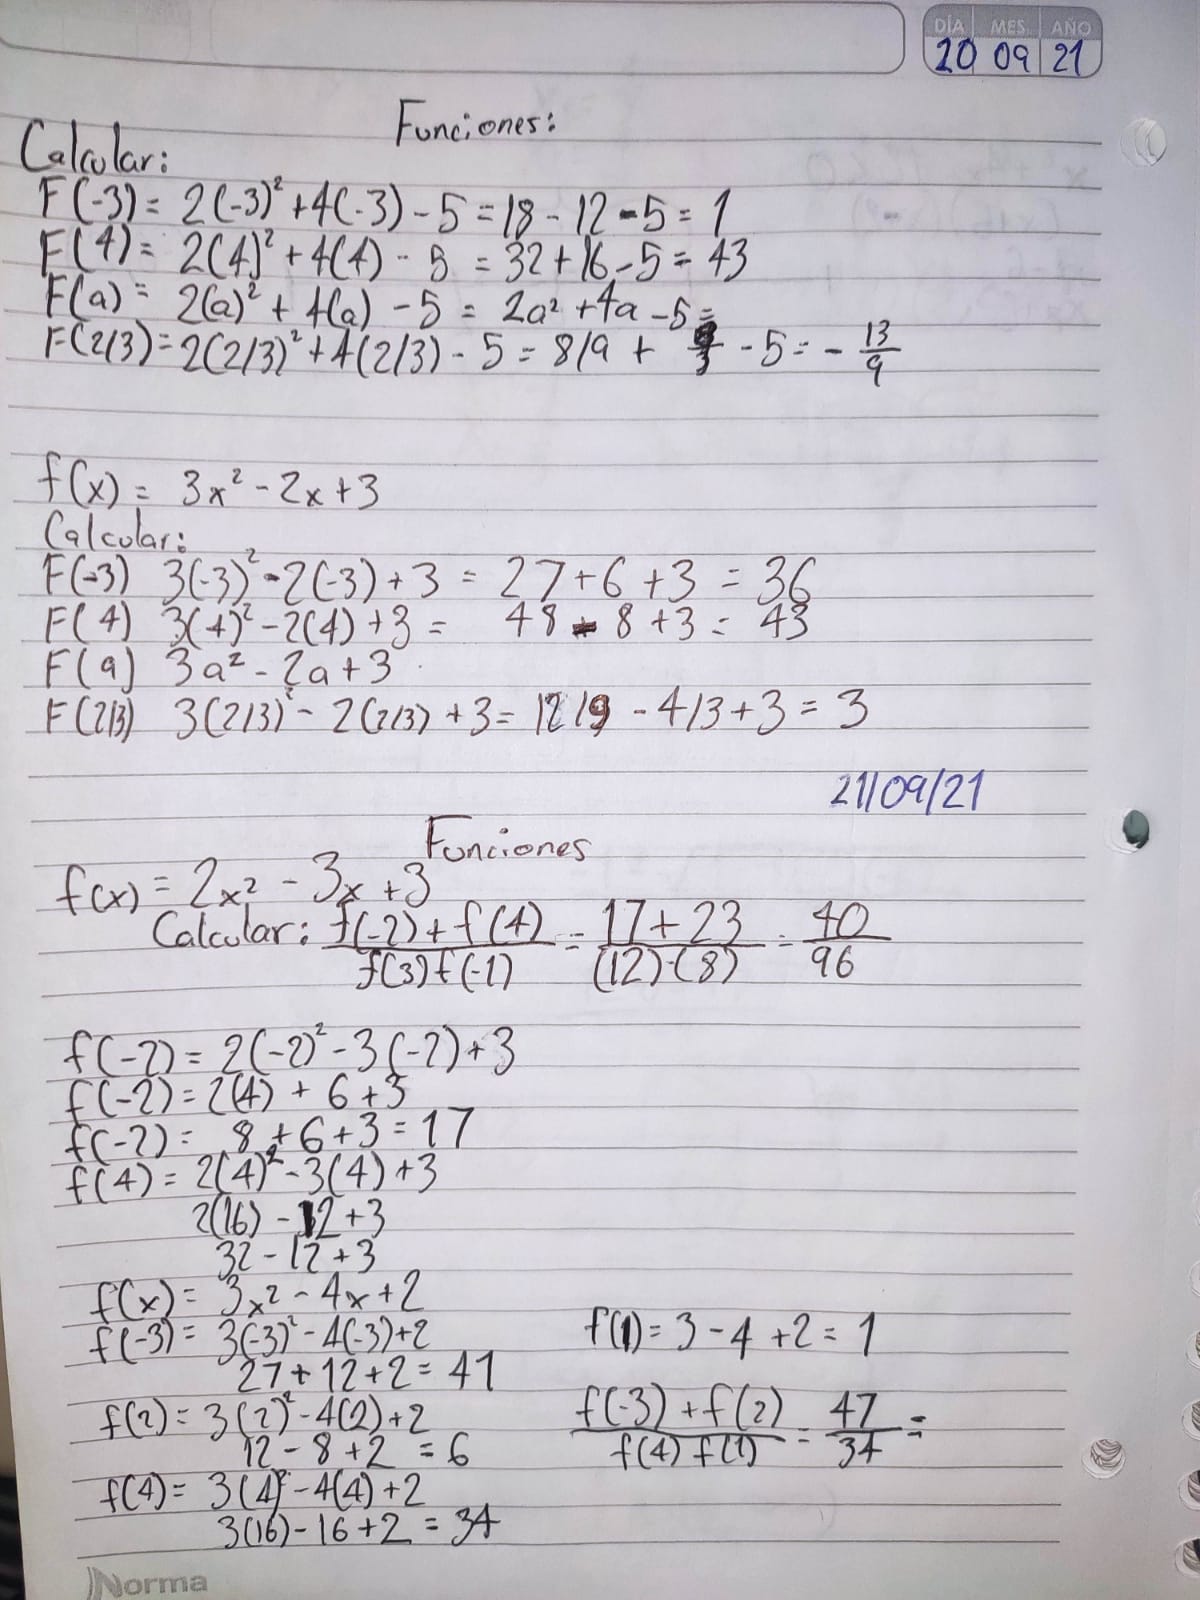 DÍA MES AÑO
20 09 21
Funciones:
Calcular:
F(-3) = 2(-3)² + 4(-3) - 5 = 18 - 12 - 5 = 1
F(4) = 2(4)² + 4(4) - 5 = 32 + 16 - 5 = 43
F(a) = 2(a)² + 4(a) - 5 = 2a² + 4a - 5 =
F(2/3) = 2(2/3)² + 4(2/3) - 5 = 8/9 + - 5 = - 13/9
f(x) = 3x² - 2x + 3
Calcular:
F(-3) 3(-3)² - 2(-3) + 3 = 27 + 6 + 3 = 36
F(4) 3(4)² - 2(4) + 3 = 48 - 8 + 3 = 43
F(a) 3a² - 2a + 3
F(2/3) 3(2/3)² - 2(2/3) + 3 = 12/9 - 4/3 + 3 = 3
21/09/21
Funciones
f(x) = 2x² - 3x + 3
Calcular: f(-2) + f(4) / f(3) f(-1) = 17 + 23 / (12)·(8) = 40 / 96
f(-2) = 2(-2)² - 3(-2) + 3
f(-2) = 2(4) + 6 + 3
f(-2) = 8 + 6 + 3 = 17
f(4) = 2(4)² - 3(4) + 3
2(16) - 12 + 3
32 - 12 + 3
f(x) = 3x² - 4x + 2
f(-3) = 3(-3)² - 4(-3) + 2 f(1) = 3 - 4 + 2 = 1
27 + 12 + 2 = 41
f(2) = 3(2)² - 4(2) + 2 f(-3) + f(2) / f(4) f(1) = 47 / 34 =
12 - 8 + 2 = 6
f(4) = 3(4)² - 4(4) + 2
3(16) - 16 + 2 = 34
Norma